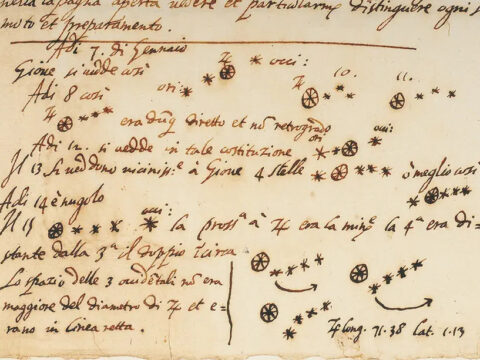 nella pagina aperta vedere et particolarmẽ distinguere ogni s
moto et preparamento.
Adi 7. di Gennaio
Gione si uedde così ori: ♃ occi:
Adi 8 così ♃ 10. 11.
era dũq̃ diretto et nõ retrogrado
Adi 12. si uedde in tale costitutione ori ♃ occi:
Il 13 si ueddono vicinissᵉ à Gioue 4 stelle ò meglio così
Adi 14 è nugolo
Il 15 occi: la prossᵃ à ♃ era la minᵉ la 4ᵃ era di-
stante dalla 3ᵃ il doppio ĩcirca
Lo spatio delle 3 occidẽtali nõ era
maggiore del diametro di ♃ et e-
rano in linea retta.
♃ long. 71.38 lat. 1.13